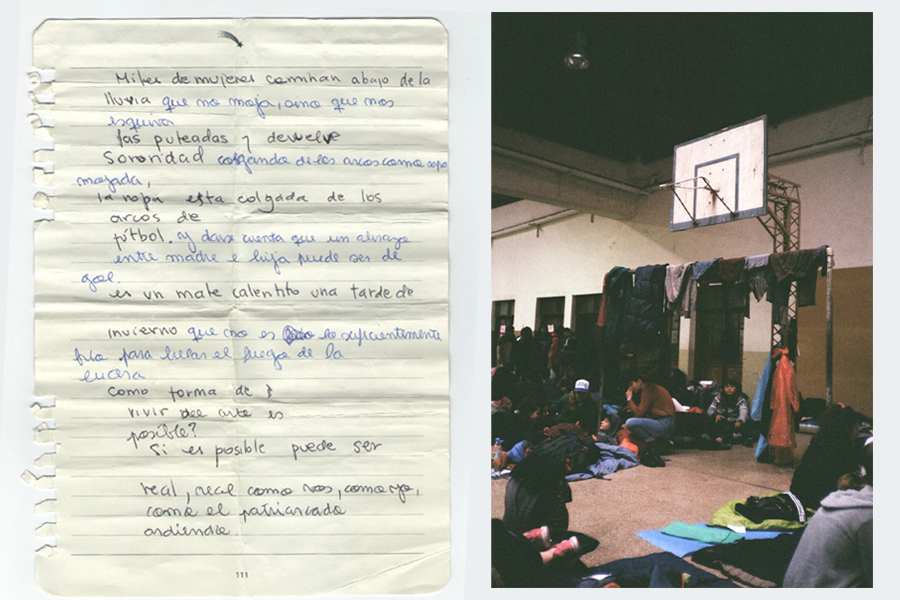 Miles de mujeres caminan abajo de la
lluvia que no moja, sino que nos
esquiva
las puteadas y devuelve
sororidad colgando de los arcos como ropa
mojada,
la ropa esta colgada de los
arcos de
fútbol. y darse cuenta que un abrazo
entre madre e hija puede ser de
gol.
es un mate calentito una tarde de
invierno que no es lo suficientemente
frio para helar el fuego de la
lucha
como forma de
vivir del arte es
posible?
Si es posible puede ser
real, real como vos, como yo,
como el patriarcado
ardiendo
111